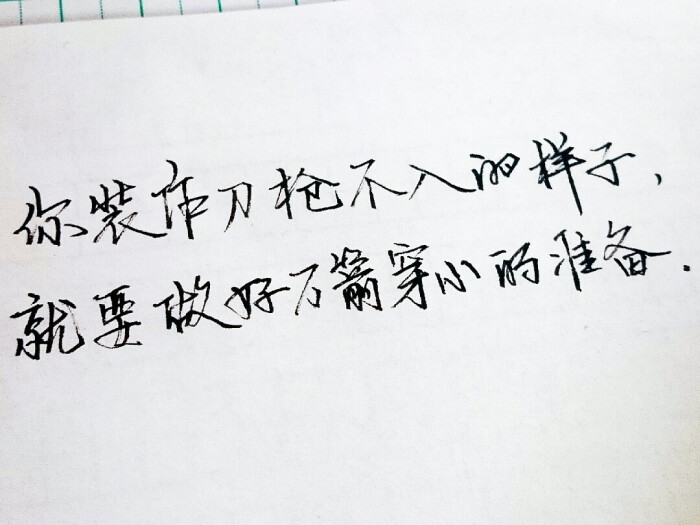 你装作刀枪不入的样子，
就要做好万箭穿心的准备.